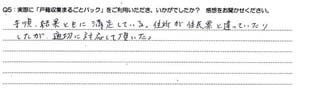 Q5：実際に「戸籍収集まるごとパック」をご利用いただき、いかがでしたか？ 感想をお聞かせください。
手順、結果ともに満足している。住所が住民票と違っていたり
したが、適切に対応して頂いた。